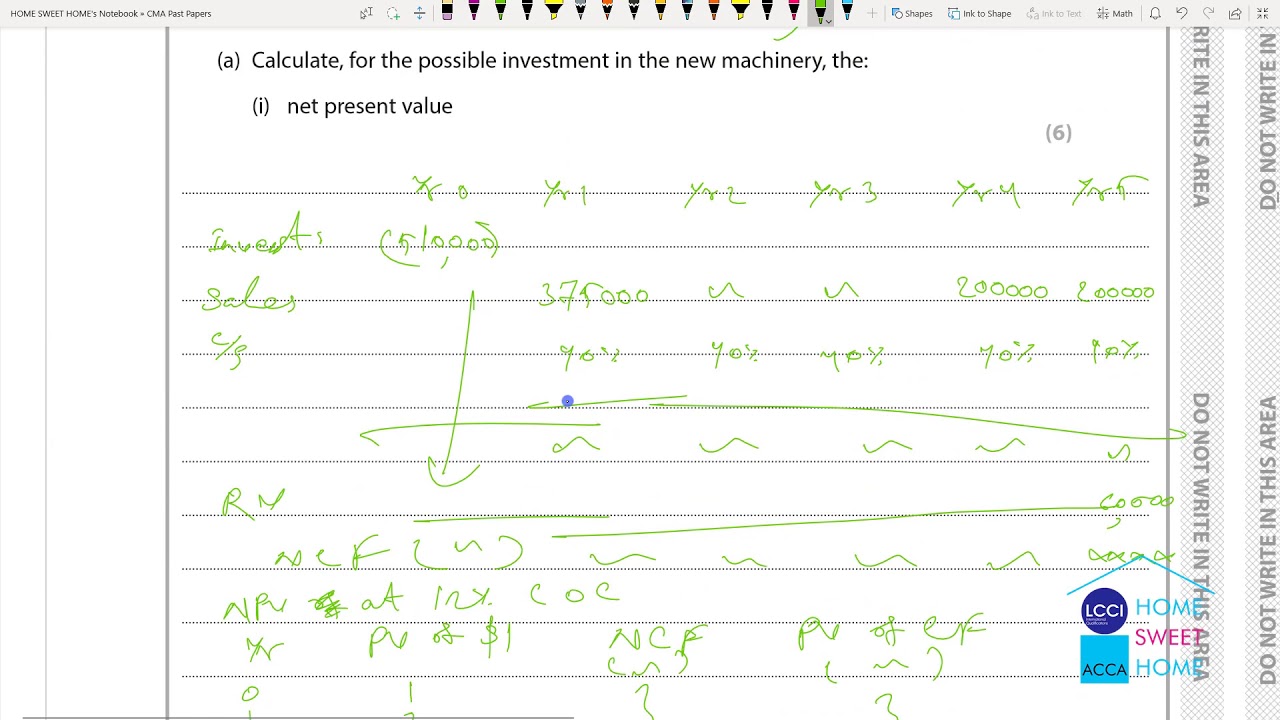 HOME SWEET HOME's Notebook » CMA Past Papers
Shapes Ink to Shape Ink to Text Math
(a) Calculate, for the possible investment in the new machinery, the:
(i) net present value
(6)
Yr 0 Yr 1 Yr 2 Yr 3 Yr 4 Yr 5
Invest: (510,000)
Sales 375000 200000 200000
C/S 40% 40% 40% 40% 40%
NCF
NPV at 12% COC
Yr PV of $1 NCF PV of CF
0 1
LCCI
International Qualifications
ACCA
HOME
SWEET
HOME
DO NOT WRITE IN THIS AREA
DO NOT WRITE IN THIS AREA
RITE IN THIS AREA
DO NOT WRITE IN